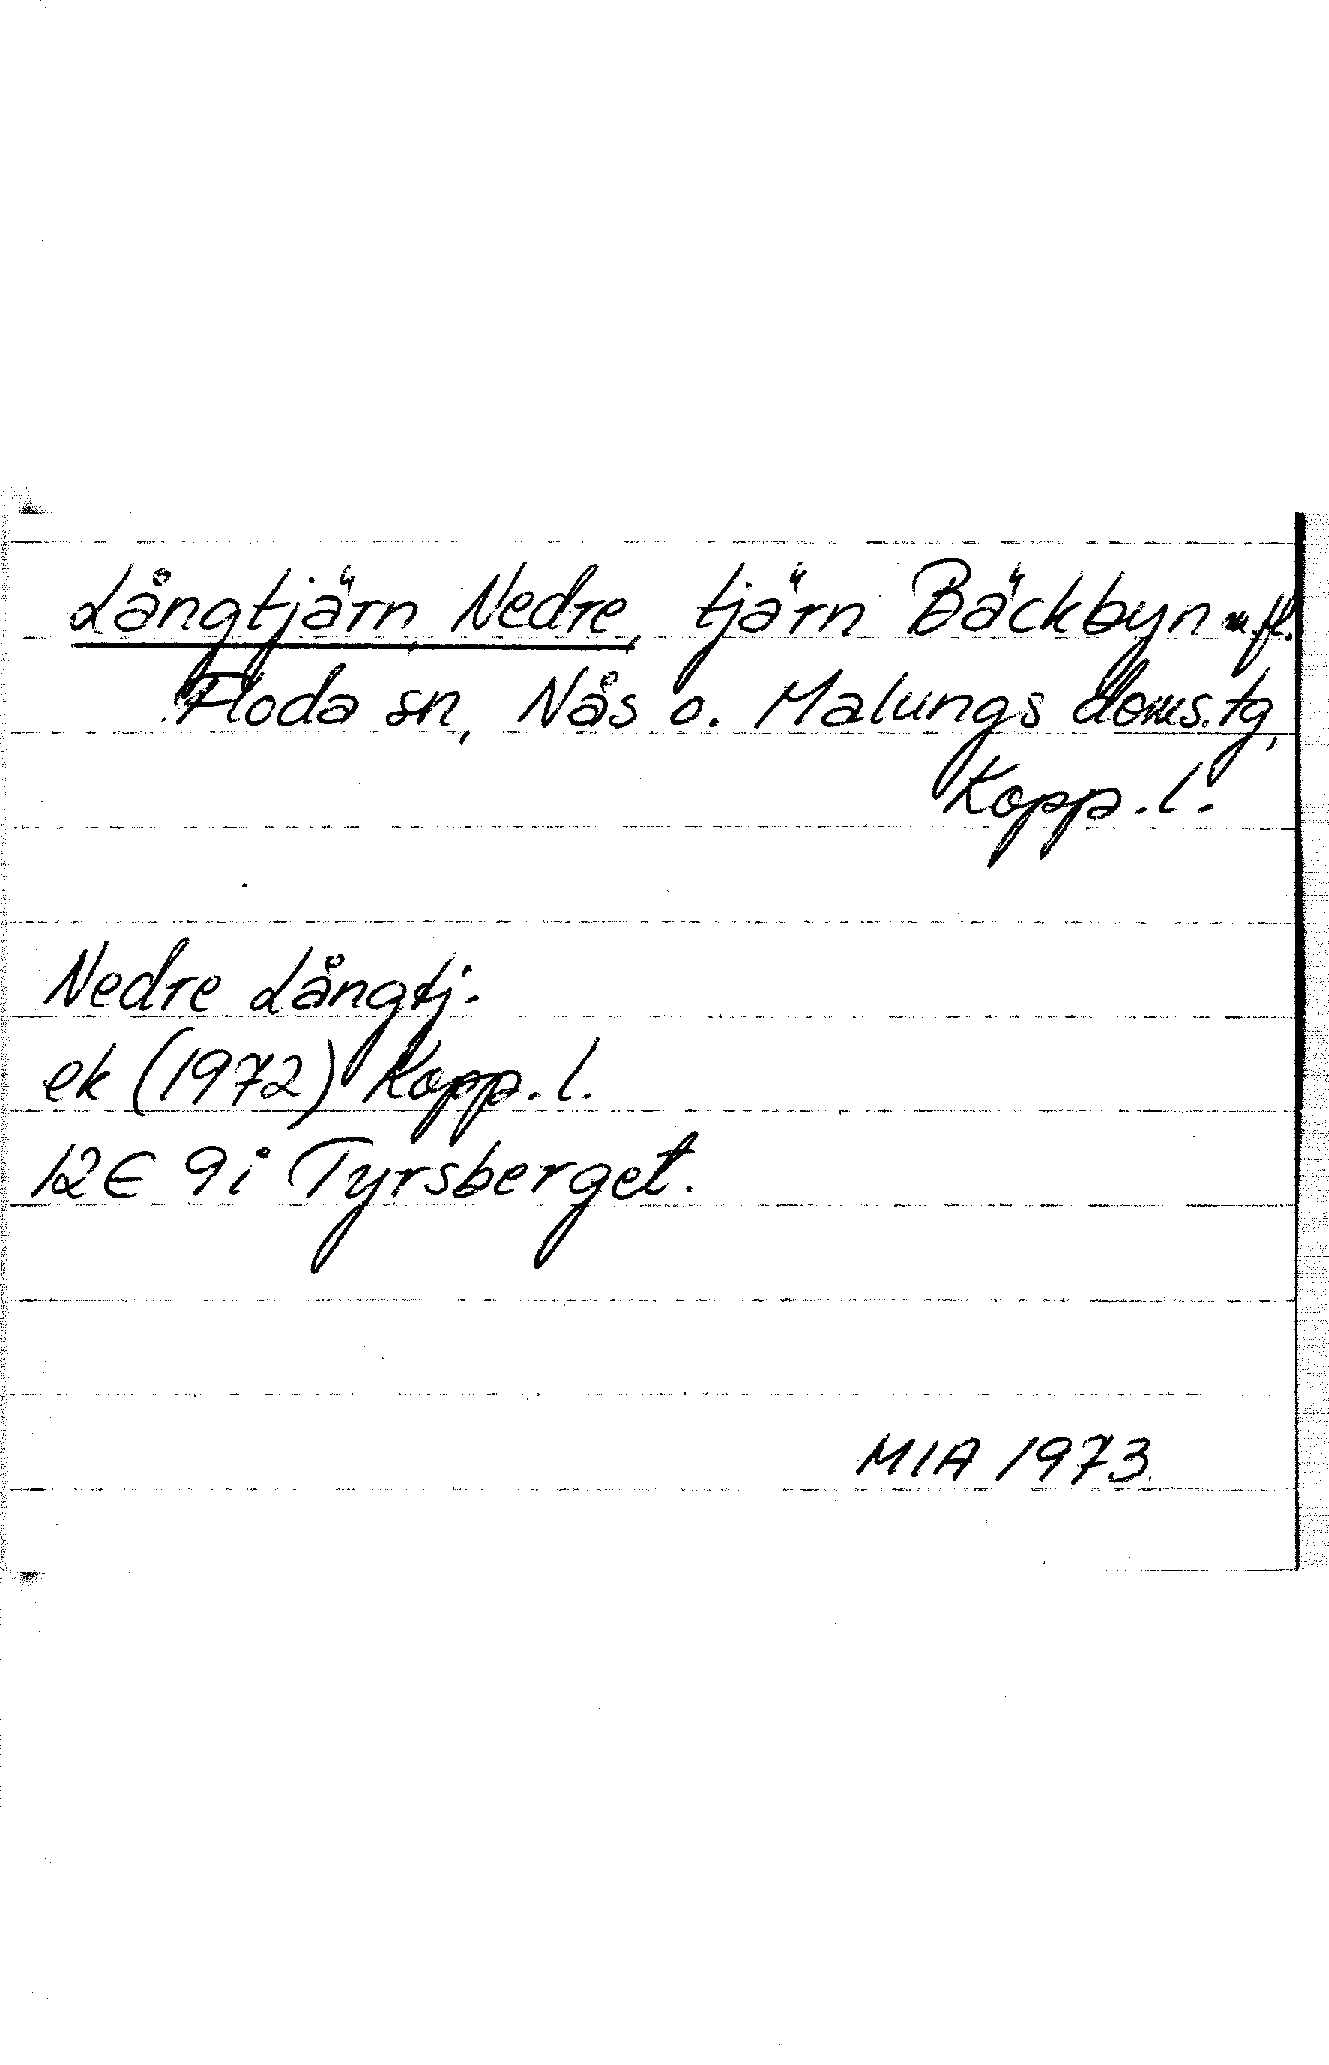 Långtjärn, Nedre, tjärn Bäckbyn m.fl.
Floda sn, Nås o. Malungs doms. tg,
Kopp. l.
Nedre Långtj.
ek (1972) Kopp. l.
12E 9i Tyrsberget.
MIA 1973